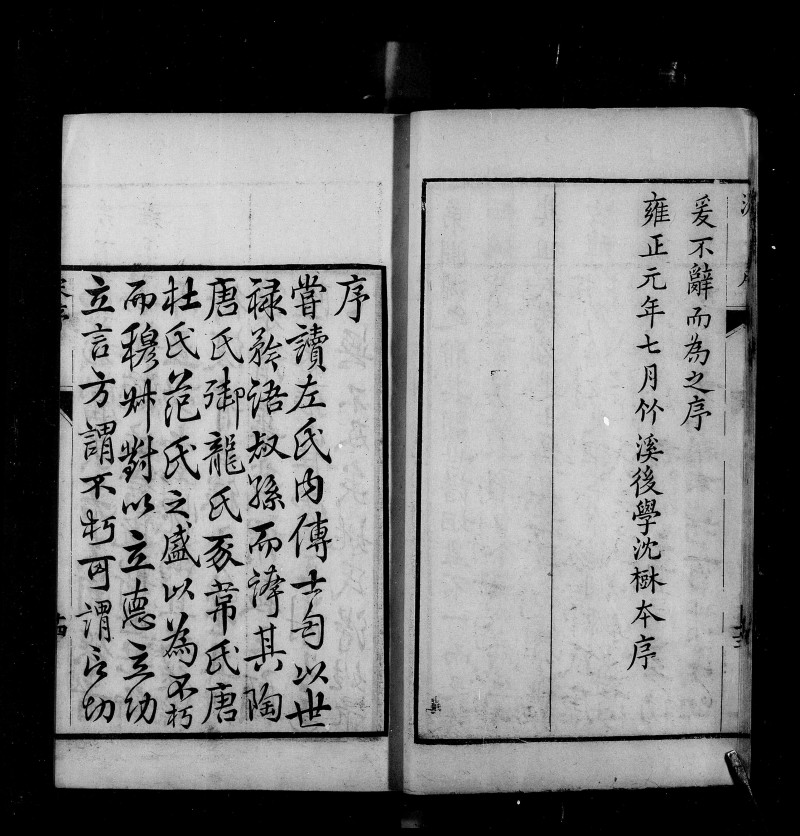 爰不辭而為之序
雍正元年七月竹溪後學沈樹本序
序
嘗讀左氏內傳士匄以世
祿矜語叔孫而誇其陶
唐氏御龍氏豕韋氏唐
杜氏范氏之盛以為不朽
而穆叔對以立德立功
立言方謂不朽可謂言切